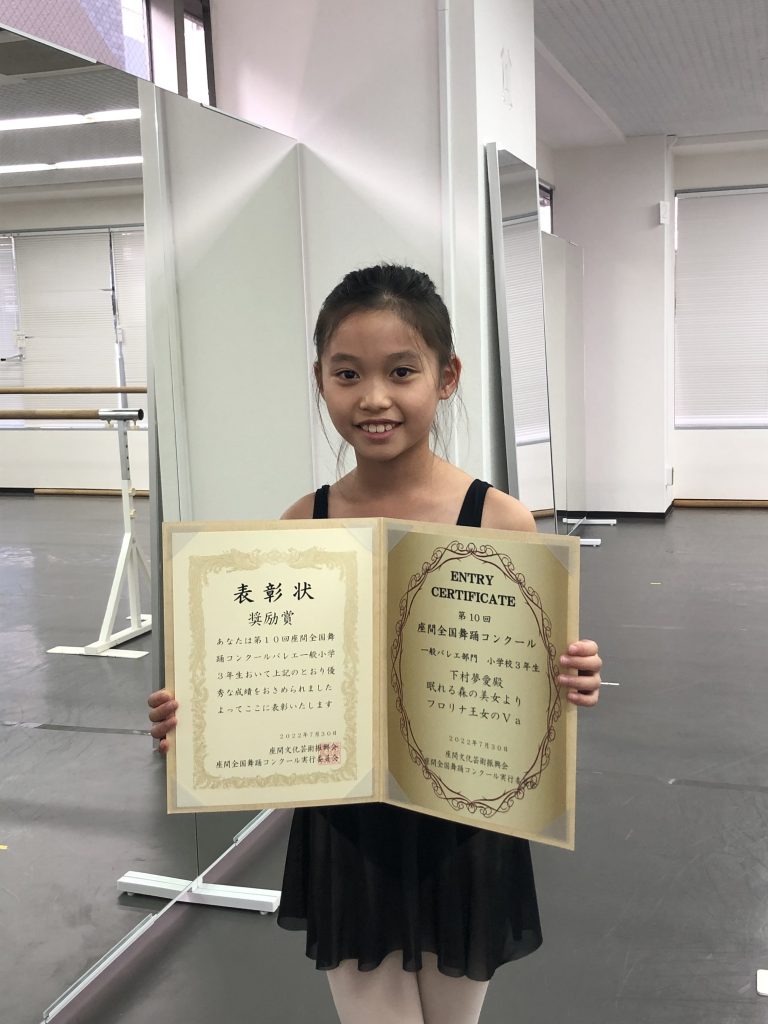 表彰状
奨励賞
あなたは第１０回座間全国舞
踊コンクールバレエ一般小学
３年生おいて上記のとおり優
秀な成績をおさめられました
よってここに表彰いたします
２０２２年７月３０日
座間文化芸術振興会
座間全国舞踊コンクール実行委員会
ENTRY
CERTIFICATE
第１０回
座間全国舞踊コンクール
一般バレエ部門　小学校３年生
下村夢愛殿
眠れる森の美女より
フロリナ王女のＶａ
２０２２年７月３０日
座間文化芸術振興会
座間全国舞踊コンクール実行委